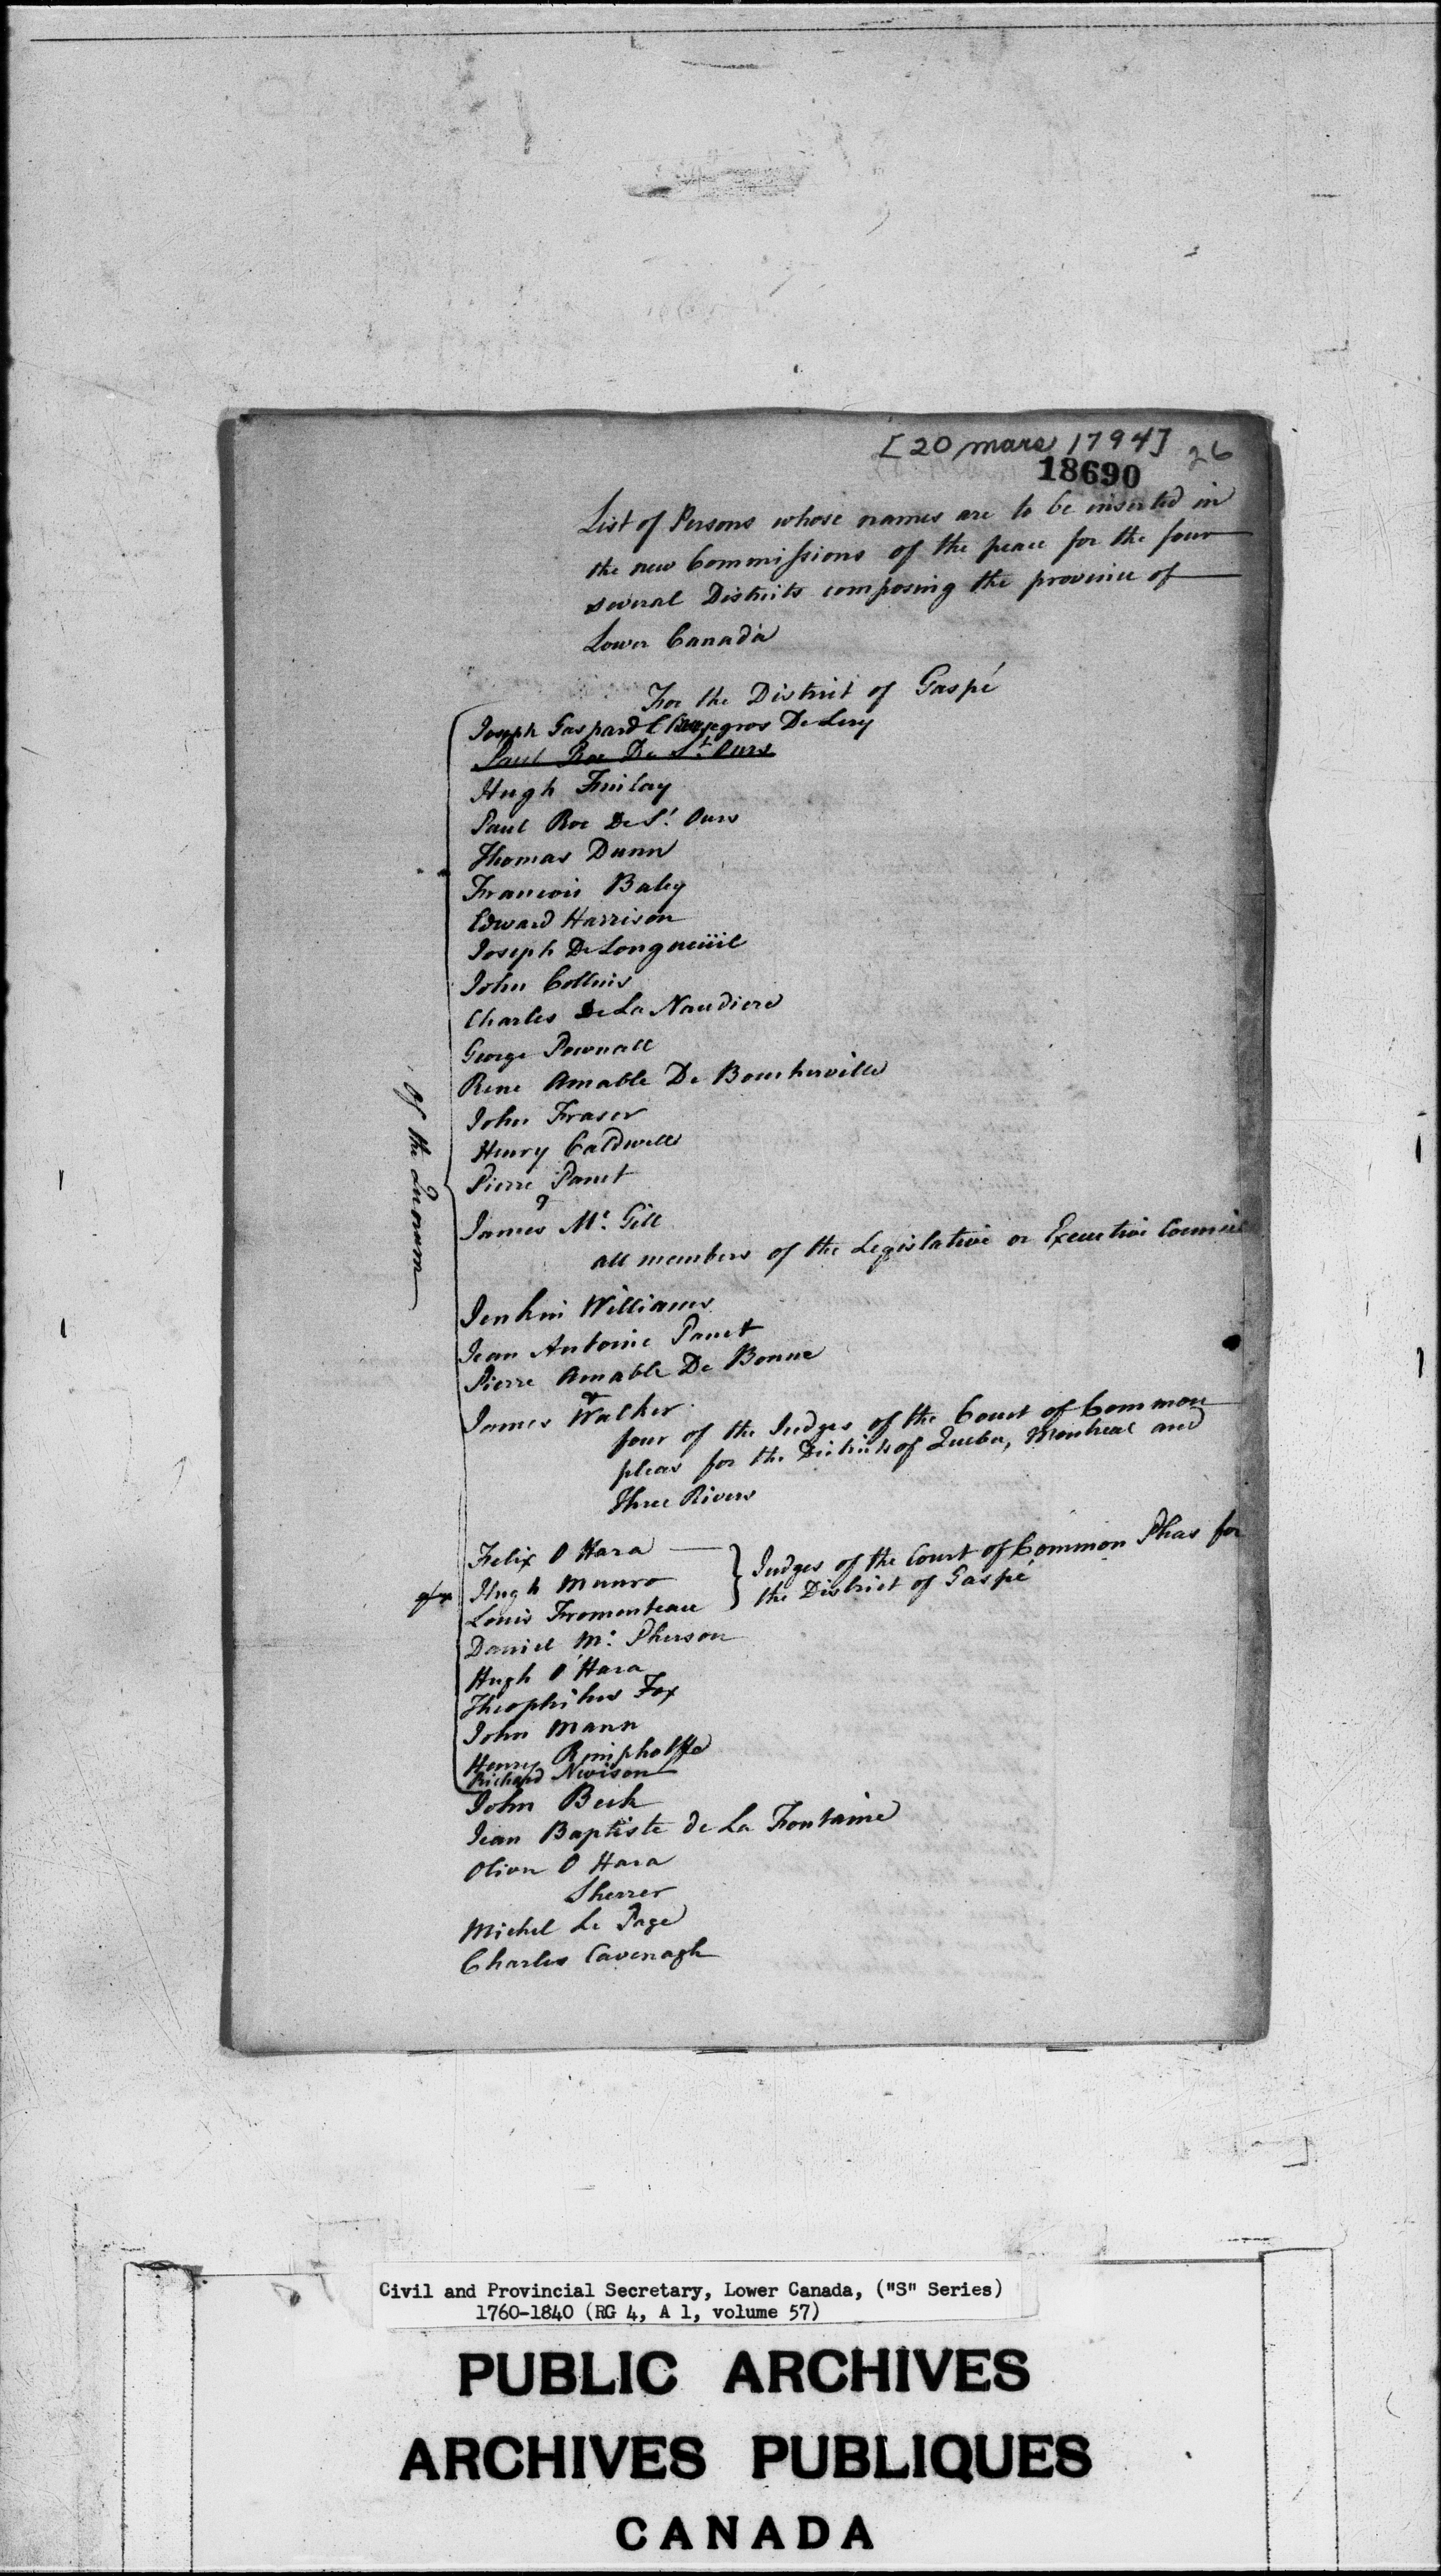 [20 mars 1794] 26
18690
List of Persons whose names are to be inserted in
the new Commissions of the peace for the four
several Districts composing the province of
Lower Canada
For the District of Gaspé
Joseph Gaspard Chaussegros De Lery
Paul Roc De St. Ours
Hugh Finlay
Paul Roc De St. Ours
Thomas Dunn
Francois Baby
Edward Harrison
Joseph De Longueüil
John Collins
Charles De La Naudiere
George Pownall
Rene Amable De Boucherville
John Fraser
Henry Caldwell
Pierre Panet
&
James Mc. Gill
all members of the Legislative or Executive Council
of the Quorum
Jenkin Williams
Jean Antoine Panet
Pierre Amable De Bonne
&
James Walker
four of the Judges of the Court of Common
pleas for the Districts of Quebec, Montreal and
Three Rivers
Felix O Hara
Hugh Munro
Louis Fromenteau
Judges of the Court of Common Pleas for
the District of Gaspé
Daniel Mc. Pherson
Hugh O'Hara
Theophilus Fox
John Mann
Henry Rimphoffe
Richard Newison
John Beck
Jean Baptiste de La Fontaine
Oliver O Hara
Sherrer
Michel Le Page
Charles Cavenagh
Civil and Provincial Secretary, Lower Canada, ("S" Series)
1760-1840 (RG 4, A 1, volume 57)
PUBLIC ARCHIVES
ARCHIVES PUBLIQUES
CANADA